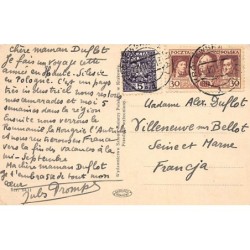 Chère maman Duflot
Je fais un voyage cette
année en Haute-Silésie
en Pologne. C'est un pays
très industriel nous
mes camarades et moi 5
semaines dans la région
Ensuite nous verrons la
Roumanie la Hongrie l'
et nous reviendrons
vers la fin des vacances à la
mi-Septembre
Ma chère maman Duflot
Je t'embrasse de tout mon
coeur
Jules
15
POCZTA POLSKA
30
30
Madame Alex. Duflot
Villeneuve sur Bellot
Seine et Marne
Francja